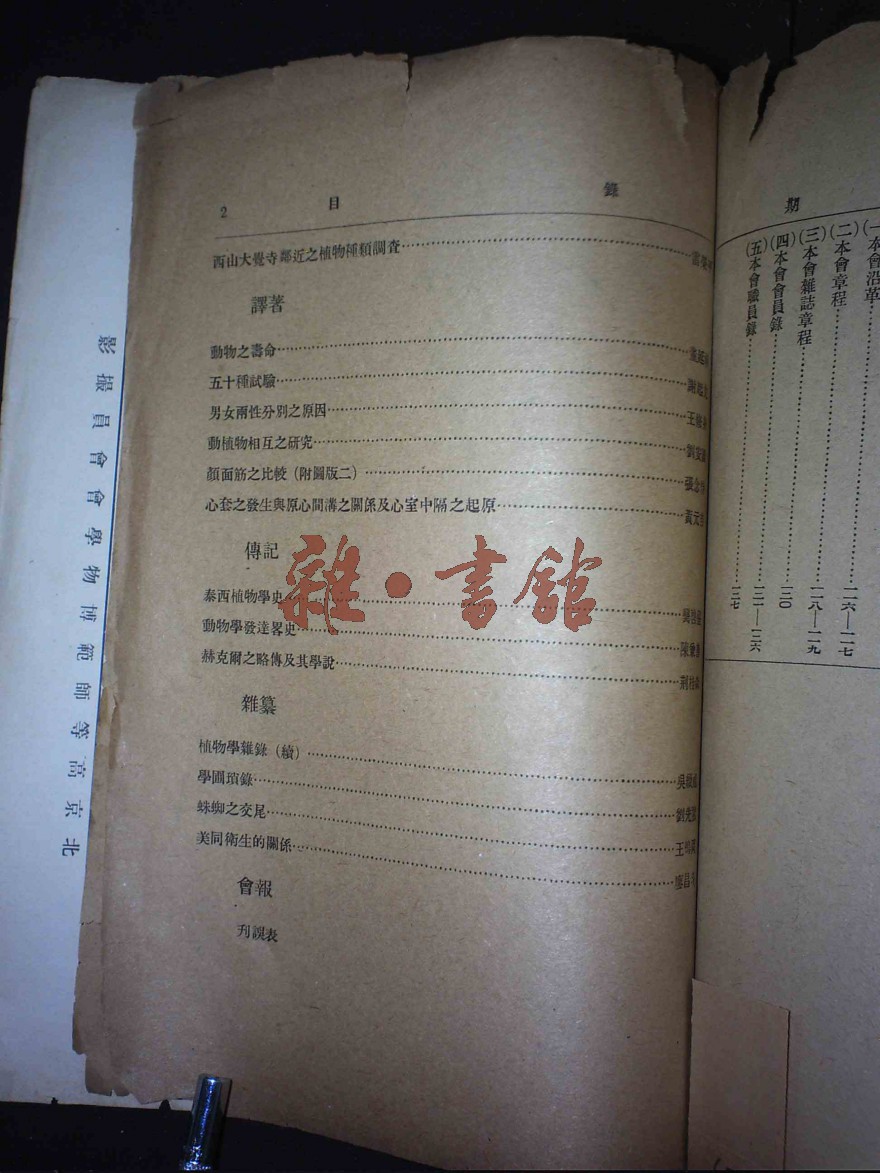 2 目 錄
西山大覺寺鄰近之植物種類調查
譯著
動物之壽命
五十種試驗
男女兩性分別之原因 王
動植物相互之研究 劉
顏面筋之比較（附圖版二） 張念
心套之發生與原心間溝之關係及心室中隔之起原 黃元
傳記
泰西植物學史
動物學發達畧史 陳
赫克爾之略傳及其學說
雜纂
植物學雜錄（續） 吳
學圃瑣錄 劉
蛛蜘之交尾 王
美同衛生的關係
會報
刊誤表
雜·書館
期
（一）本會沿革
（二）本會章程 二六—二七
（三）本會雜誌章程 二八—二九
（四）本會會員錄 三〇
（五）本會職員錄 三一—三六
三七
北京高等師範博物學會會員撮影